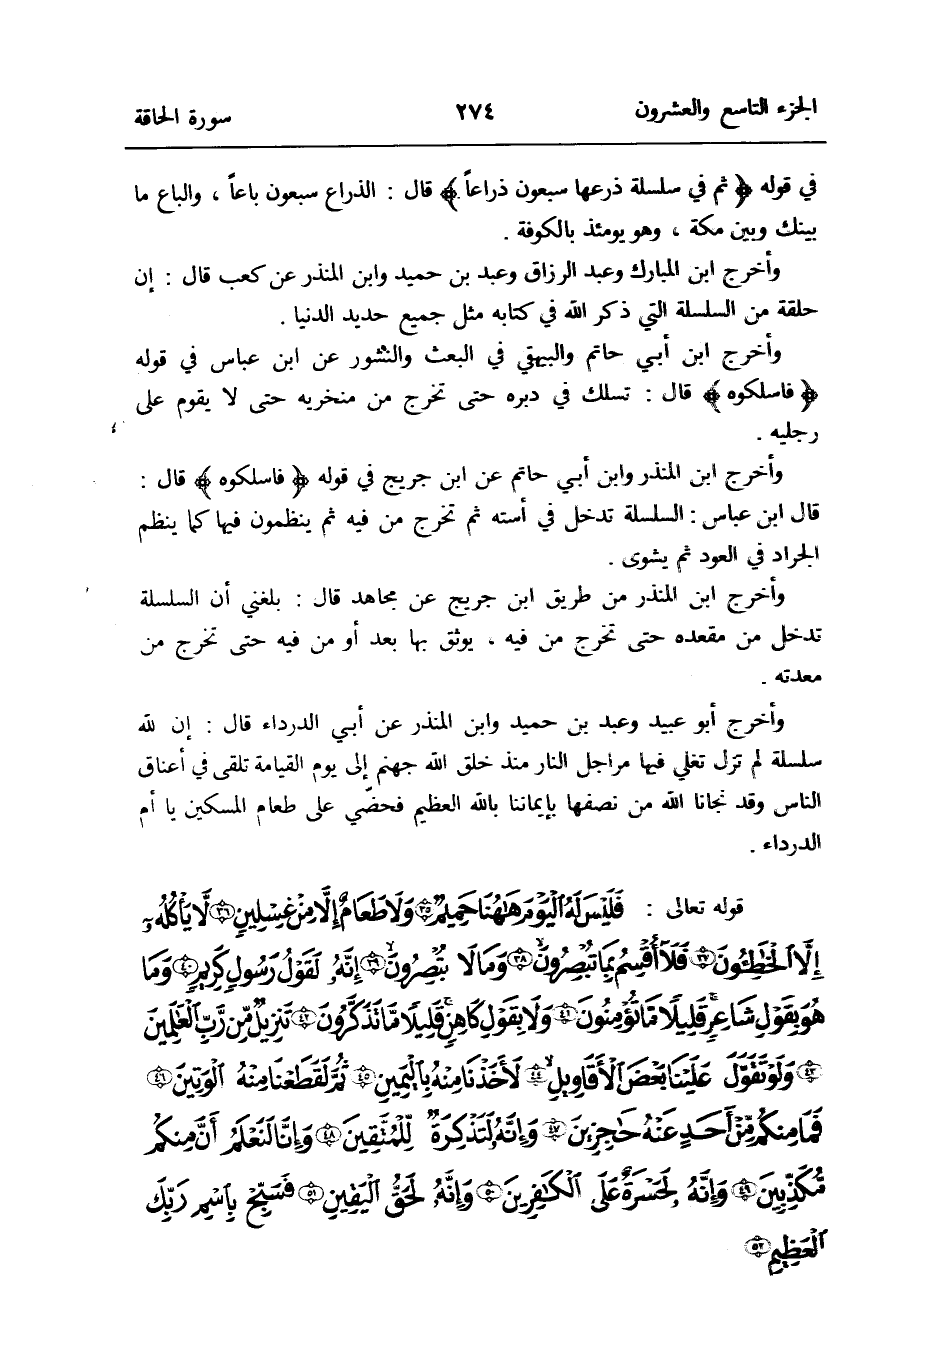 الجزء التاسع والعشرون ٢٧٤ سورة الحاقة
في قوله ﴿ ثم في سلسلة ذرعها سبعون ذراعاً ﴾ قال : الذراع سبعون باعاً ، والباع ما
بينك وبين مكة ، وهو يومئذ بالكوفة .
وأخرج ابن المبارك وعبد الرزاق وعبد بن حميد وابن المنذر عن كعب قال : إن
حلقة من السلسلة التي ذكر الله في كتابه مثل جميع حديد الدنيا .
وأخرج ابن أبي حاتم والبيهقي في البعث والنشور عن ابن عباس في قوله
﴿ فاسلكوه ﴾ قال : تسلك في دبره حتى تخرج من منخريه حتى لا يقوم على
رجليه .
وأخرج ابن المنذر وابن أبي حاتم عن ابن جريج في قوله ﴿ فاسلكوه ﴾ قال :
قال ابن عباس : السلسلة تدخل في أسته ثم تخرج من فيه ثم ينظمون فيها كما ينظم
الجراد في العود ثم يشوى .
وأخرج ابن المنذر من طريق ابن جريج عن مجاهد قال : بلغني أن السلسلة
تدخل من مقعده حتى تخرج من فيه ، يوثق بها بعد أو من فيه حتى تخرج من
معدته .
وأخرج أبو عبيد وعبد بن حميد وابن المنذر عن أبي الدرداء قال : إن لله
سلسلة لم تزل تغلي فيها مراجل النار منذ خلق الله جهنم إلى يوم القيامة تلقى في أعناق
الناس وقد نجانا الله من نصفها بإيماننا بالله العظيم فحضّي على طعام المسكين يا أم
الدرداء .
قوله تعالى : فَلَيْسَ لَهُ ٱلْيَوْمَ هَٰهُنَا حَمِيمٌ ٣٥ وَلَا طَعَامٌ إِلَّا مِنْ غِسْلِينٍ ٣٦ لَّا يَأْكُلُهُۥٓ
إِلَّا ٱلْخَٰطِـُٔونَ ٣٧ فَلَآ أُقْسِمُ بِمَا تُبْصِرُونَ ٣٨ وَمَا لَا تُبْصِرُونَ ٣٩ إِنَّهُۥ لَقَوْلُ رَسُولٍ كَرِيمٍ ٤٠ وَمَا
هُوَ بِقَوْلِ شَاعِرٍ ۚ قَلِيلًا مَّا تُؤْمِنُونَ ٤١ وَلَا بِقَوْلِ كَاهِنٍ ۚ قَلِيلًا مَّا تَذَكَّرُونَ ٤٢ تَنزِيلٌ مِّن رَّبِّ ٱلْعَٰلَمِينَ
٤٣ وَلَوْ تَقَوَّلَ عَلَيْنَا بَعْضَ ٱلْأَقَاوِيلِ ٤٤ لَأَخَذْنَا مِنْهُ بِٱلْيَمِينِ ٤٥ ثُمَّ لَقَطَعْنَا مِنْهُ ٱلْوَتِينَ ٤٦
فَمَا مِنكُم مِّنْ أَحَدٍ عَنْهُ حَٰجِزِينَ ٤٧ وَإِنَّهُۥ لَتَذْكِرَةٌ لِّلْمُتَّقِينَ ٤٨ وَإِنَّا لَنَعْلَمُ أَنَّ مِنكُم
مُّكَذِّبِينَ ٤٩ وَإِنَّهُۥ لَحَسْرَةٌ عَلَى ٱلْكَٰفِرِينَ ٥٠ وَإِنَّهُۥ لَحَقُّ ٱلْيَقِينِ ٥١ فَسَبِّحْ بِٱسْمِ رَبِّكَ
ٱلْعَظِيمِ ٥٢